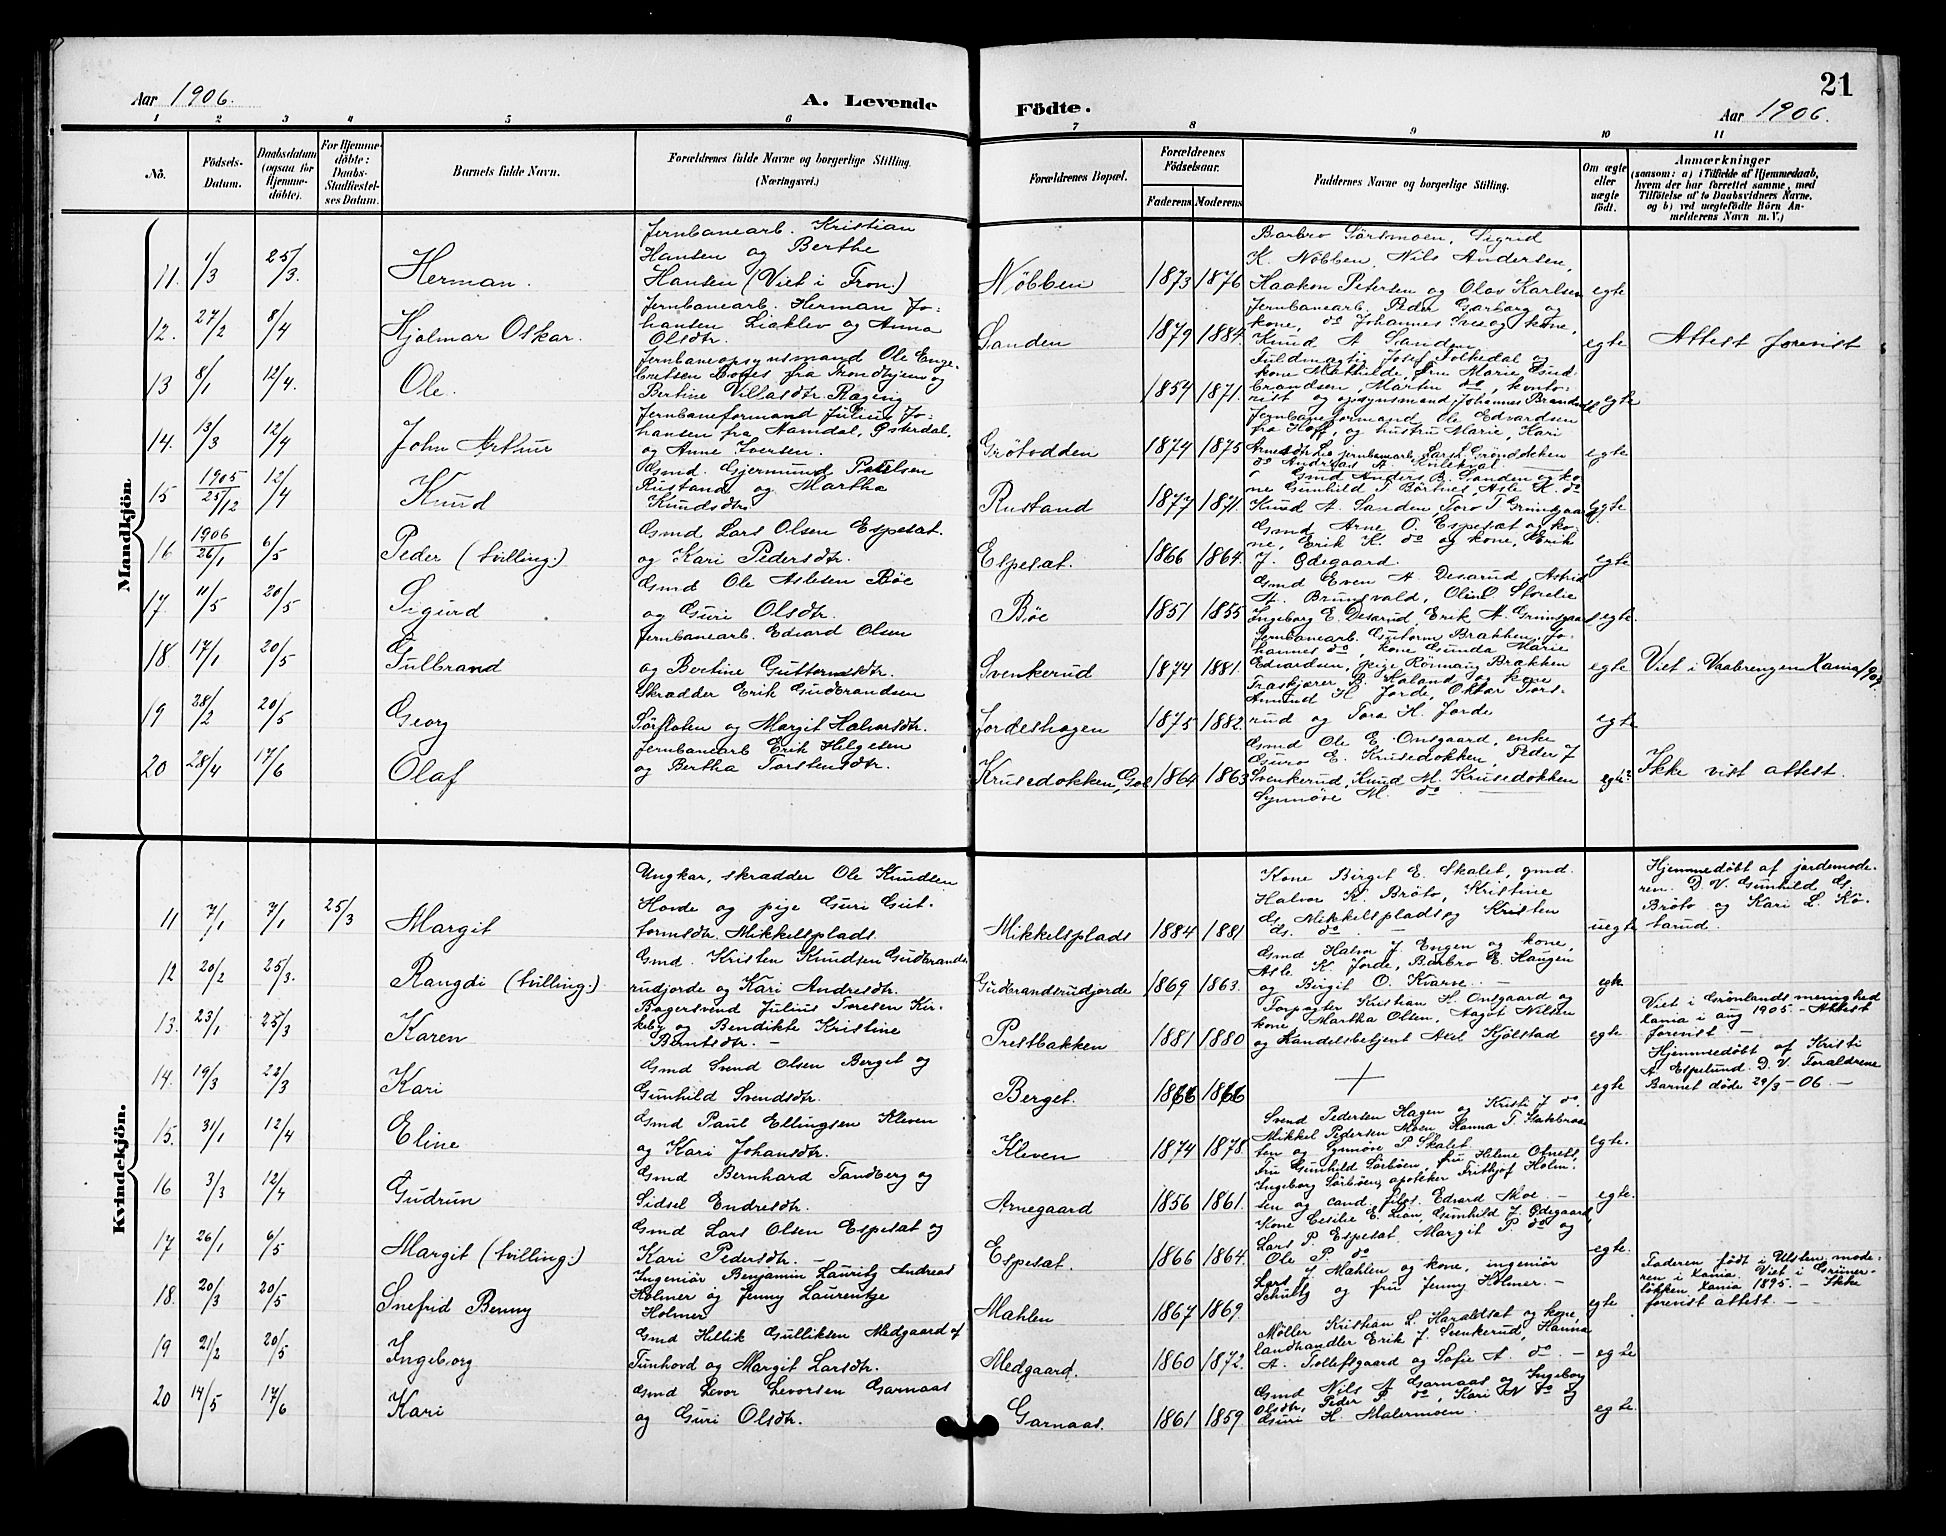 Aar 1906.
A. Levende
Födte.
21
Aar 1906.
1 2 3 4 5 6 7 8 9 10 11
Nö.
Födsels-Datum.
Daabsdatum (ogsaa for Hjemme-döbte).
For Hjemme-döbte: Daabs-Stadfæstel-ses Datum.
Barnets fulde Navn.
Forældrenes fulde Navne og borgerlige Stilling. (Næringsvei.)
Forældrenes Bopæl.
Forældrenes Födselsaar.
Faderens Moderens
Faddernes Navne og borgerlige Stilling.
Om ægte eller uægte födt.
Anmærkninger
(saasom: a) i Tilfælde af Hjemmedaab, hvem der har forrettet samme, med Tilföielse af to Daabsvidners Navne, og b) ved uægtefödte Börn An-melderens Navn m. V.)
Mandkjön.
11. 1/3 25/3. Herman.
Jernbanearb. Kristian
Hansen og Berthe
Hansen (Viet i Fron.)
Nöbben 1873 1876
Barbro Sørsmoen, Sigrid
K. Nöbben, Nils Andersen,
Haakon Petersen og Olav Karlsen
egte
12. 27/2 8/4 Hjalmar Oskar.
Jernbanearb. Herman Jo-
hansen Liaklev og Anna
Olsdtr.
Sanden 1879 1884
Jernbanearb. Peder Garborg og
kone, do Johannes og kone,
Knud A Sanden
egte Attest forevist
13 8/1 12/4. Ole.
Jernbaneopsynsmand Ole Enge-
bretsen fra Trondhjem og
Bertine Villasdtr.
1854 1871.
Fuldmægtig Josef Tolkedal og
kone Mathilde, fru Marie Gud-
brandsen, Martin do, konto-
rist og opsynsmand Johannes
egte
14. 13/3 12/4 John Arthur
Jernbaneformand Julius Jo-
hansen fra Namdal, Østerdal,
og Anne Iversen.
Grötodden 1874 1875
Jernbaneformand Ole Edvardsen
fra Hoff, og hustru Marie, Kari
egte
15 1905 25/12 12/4 Knud
Gmd. Gjermund
Rustand og Martha
Knudsdtr
Rustand 1877 1871.
Gmd Anders B. Sanden og ko-
ne Gunhild T Börtnes, Asle K. do
Knud A. Sanden Toro T Grimsgaard
egte
16 1906 26/1 6/5 Peder (tvilling.)
Gmd Lars Olsen Espesæt.
og Kari Pedersdtr.
Espesæt. 1866 1864.
Gmd Arne O. Espesæt og ko-
ne, Erik K. do og kone, Erik
J. Ødegaard.
egte
17. 11/5 20/5 Sigurd
Gmd Ole Aslesen Böe
og Guri Olsdtr.
Böe 1851 1855
Gmd Even A. Desarud, Astrid
A. Brunsvald, Olin O. Storelie
Ingeborg E. Desarud, Erik A. Grimsgaard
egte.
18. 17/1 20/5 Gulbrand
Jernbanearb. Edvard Olsen
og Bertine Guttormsdtr.
Svenkerud 1874 1881.
Jernbanearb. Guttorm Brakken, Jo-
hannes do, kone Gunda Marie
Edvardsen, pige Rönnaug Brakken
egte Viet i Vaalerengen Xania
19 28/2 20/5 Georg
Skrædder Erik Gudbrandsen
Sörfloten og Margit Halvorsdtr.
Jordeshagen 1875 1882.
B. Kaland og kone
Amund H. Jorde, Oktar Tors-
rud og Tora H. Jorde
egte
20 28/4 17/6 Olaf
Jernbanearb Erik Helgesen
og Bertha Torstensdtr.
Krusedokken, Gol 1864 1863
Gmd Ole E. Onsgaard, enke
Guro E. Krusedokken, Peder J
Svenkerud, Knud M. Krusedokken
Synnöve M. do
egte? Ikke vist attest.
Kvindekjön.
11 7/1 7/1 25/3 Margit
Ungkar, skrædder Ole Knudsen
Hovde og pige Guri Gut-
tormsdtr. Mikkelsplads.
Mikkelsplads 1884 1881
Kone Birgit E. Skalet, gmd.
Halvor K. Bröto, Kristine
G. Mikkelsplads og Kristen
G. do.
uegte
Hjemmedöbt af jordemode-
ren. D. V. Gunhild G.
Bröto og Kari L. Rö-
tarud.
12 20/2 25/3. Rangdi (tvilling.)
Gmd. Kristen Knudsen Gudbrands-
rudjorde og Kari Andresdtr.
Gudbrandsrudjorde 1869 1863.
Gmd Halvor J. Engen og kone,
Asle K. Jorde, Barbro E. Haugen
og Birgit O. Kvarve.
egte
13. 23/1 25/3 Karen
Bagersvend Julius Toresen Kir-
keby og Bendikte Kristine
Berntsdtr. –
Prestbakken 1881 1880
Forpagter Kristian H. Onsgaard og
kone Martha Olsen, Aagot Nilsen
og Handelsbetjent Axel Kjölstad
egte
Viet i Grönlands menighed
Xania i aug 1905 – Attest
forevist –
14. 19/3 22/3 Kari
Gmd Svend Olsen Berget og
Gunhild Svendsdtr.
Berget. 1866 1866
egte
Hjemmedöbt af Kristi
A. Espelund. D. V. Forældrene
Barnet döde 29/3 – 06. –
15. 31/1 12/4 Eline
Gmd Paul Ellingsen Kleven
og Kari Johansdtr.
Kleven 1874 1878.
Svend Pedersen Hagen og Kristi J do.
Mikkel Pedersen Moen, Hanna T.
ten og Synnöve P Skalet.
egte.
16 3/3 12/4 Gudrun
Gmd Bernhard Tandberg og
Sidsel Endresdtr.
Arnegaard 1856 1861.
Fru Gunhild Sörböen, fru Helene
Ingeborg Sörböen, apoteker Frithjof Holm-
sen og cand. filos. Edvard Moe. –
egte.
17 26/1 6/5 Margit (tvilling.)
Gmd Lars Olsen Espesæt og
Kari Pedersdtr. –
Espesæt. 1866 1864.
Kone Cecilie E. Lian, Gunhild J. Ødegaard,
Lars P. Espesæt, Margit P do og
Ole P. do
egte.
18. 20/3 20/5 Snefrid Benny
Ingeniör Benjamin Lauritz Andreas
Holmer og Jenny Laurentze
Holmer
Mahlen 1867 1869.
Lars J Mahlen og kone, ingeniör
Schultz og fru Jenny Holmer. –
egte
Faderen födt i Ulsten, mode-
ren i Xania. Viet i Grüner-
lökken Xania 1895. – Ikke
forevist attest. –
19 21/2 20/5 Ingeborg
Gmd Hellik Gulliksen Medgaard af
Tunhovd og Margit Larsdtr.
Medgaard. 1860 1872.
Möller Kristian L. Haraldset og kone,
landhandler Erik J. Svenkerud, Hanna
A. Tollefsgaard og Sofie A. do. –
egte
20 14/5 17/6 Kari
Gmd Levor Levorsen Garnaas
og Guri Olsdtr.
Garnaas. 1861 1859.
Gmd Nils A Garnaas og Ingeborg
Olsdtr, Peder P. do, Kari N do og
Guri H. Malermoen.
egte